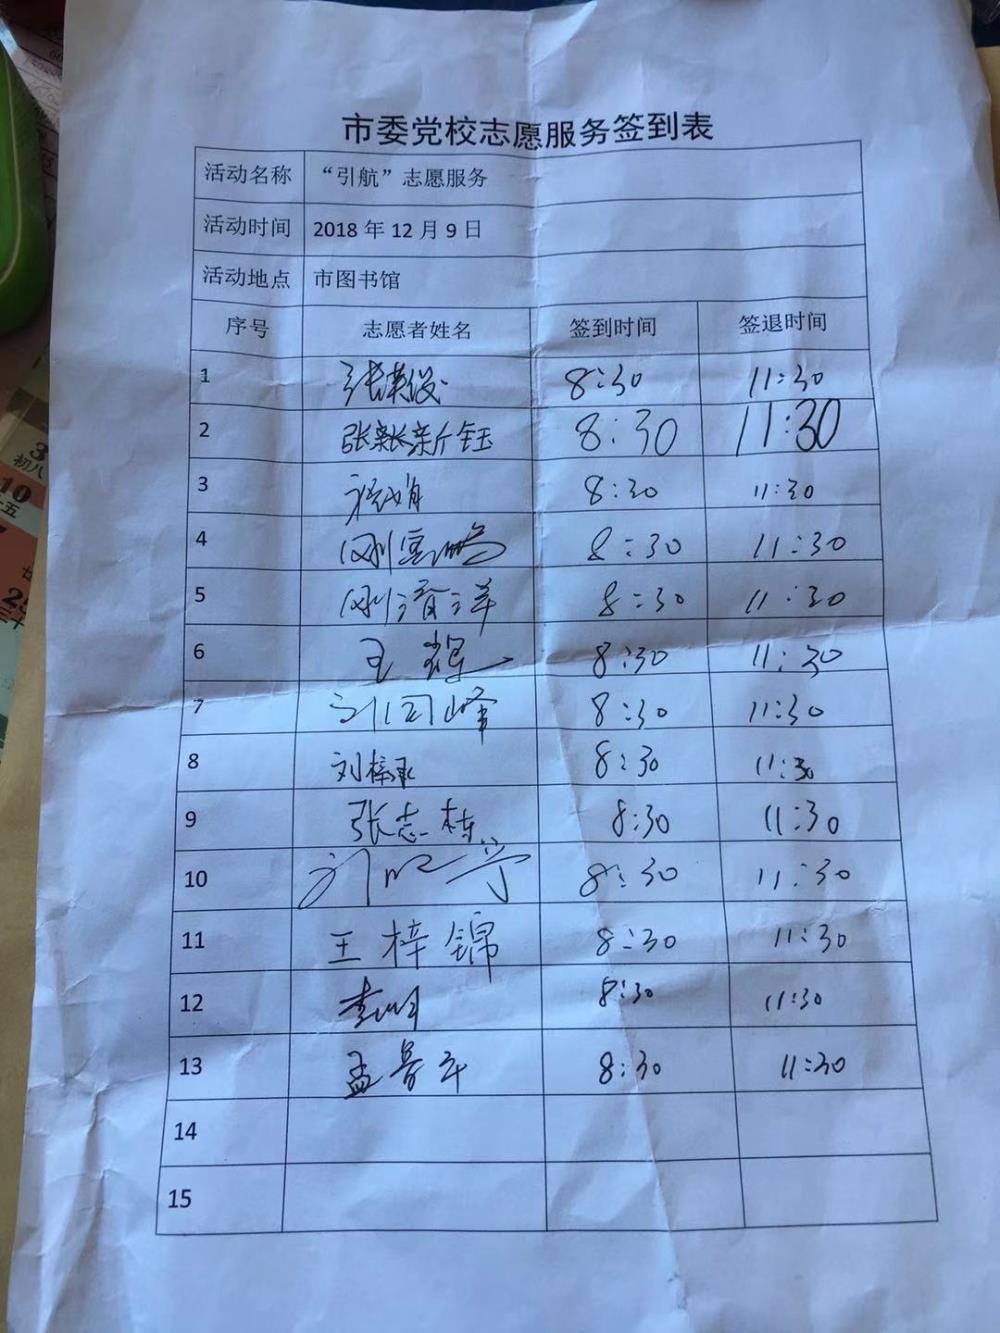 市委党校志愿服务签到表
活动名称 “引航”志愿服务
活动时间 2018 年 12 月 9 日
活动地点 市图书馆
序号 志愿者姓名 签到时间 签退时间
1 张英俊 8:30 11:30
2 8:30 11:30
3 8:30 11:30
4 8:30 11:30
5 8:30 11:30
6 王 8:30 11:30
7 刘同峰 8:30 11:30
8 刘梓 8:30 11:30
9 张志栋 8:30 11:30
10 8:30 11:30
11 王梓锦 8:30 11:30
12 李明 8:30 11:30
13 孟 8:30 11:30
14
15
3
初八
10